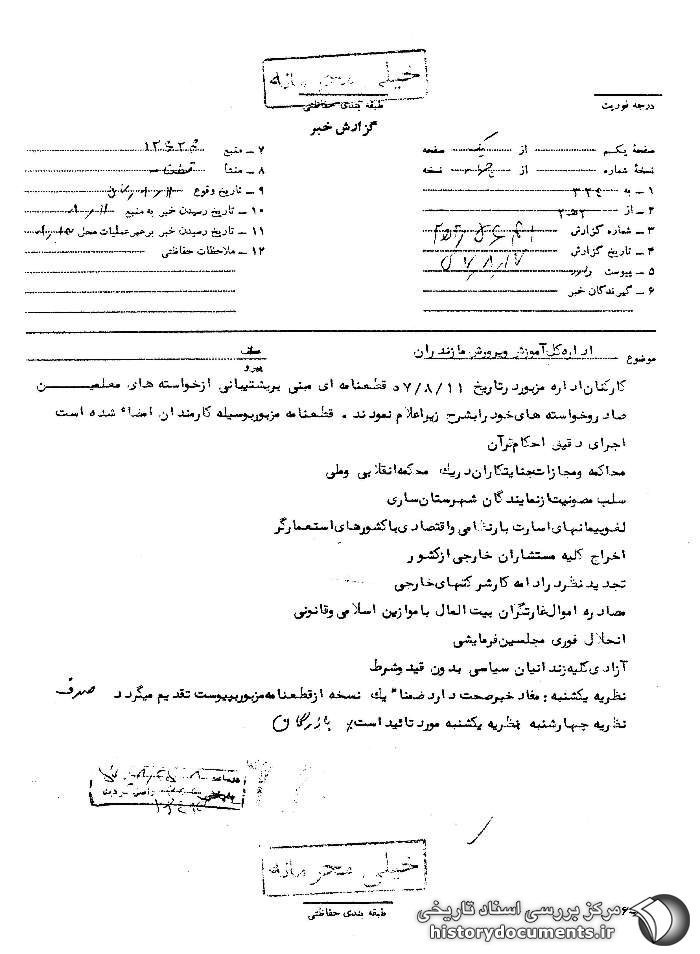 خیلی محرمانه
درجه فوریت
طبقه بندی حفاظتی
گزارش خبر
صفحهٔ یکم از یک صفحه
نسخهٔ شماره از نسخه
۱ - به ۳۲۴
۲ - از
۳ - شماره گزارش
۴ - تاریخ گزارش ۵۷/۸/۱۷
۵ - پیوست
۶ - گیرندگان خبر
۷ - منبع
۸ - منشأ
۹ - تاریخ وقوع
۱۰ - تاریخ رسیدن خبر به منبع
۱۱ - تاریخ رسیدن خبر برهبر عملیات محل
۱۲ - ملاحظات حفاظتی
موضوع اداره کل آموزش و پرورش مازندران
پیرو
کارکنان اداره مزبور در تاریخ ۵۷/۸/۱۱ قطعنامه ای مبنی بر پشتیبانی از خواسته های معلمین
صادر و خواسته های خود را بشرح زیر اعلام نمودند . قطعنامه مزبور بوسیله کارمندان امضاء شده است
اجرای دقیق احکام قرآن
محاکمه و مجازات جنایتکاران در یک محکمه انقلابی و ملی
سلب مصونیت از نمایندگان شهرستان ساری
لغو پیمانهای اسارت بار نظامی و اقتصادی با کشورهای استعمارگر
اخراج کلیه مستشاران خارجی از کشور
تجدید نظر در ادامه کار شرکتهای خارجی
مصادره اموال غارتگران بیت المال با موازین اسلامی و قانونی
انحلال فوری مجلسین فرمایشی
آزادی کلیه زندانیان سیاسی بدون قید و شرط
نظریه یکشنبه : مفاد خبر صحت دارد ضمناً یک نسخه از قطعنامه مزبور بپیوست تقدیم میگردد
نظریه چهارشنبه نظریه یکشنبه مورد تائید است
خیلی محرمانه
طبقه بندی حفاظتی
مرکز بررسی اسناد تاریخی
historydocuments.ir